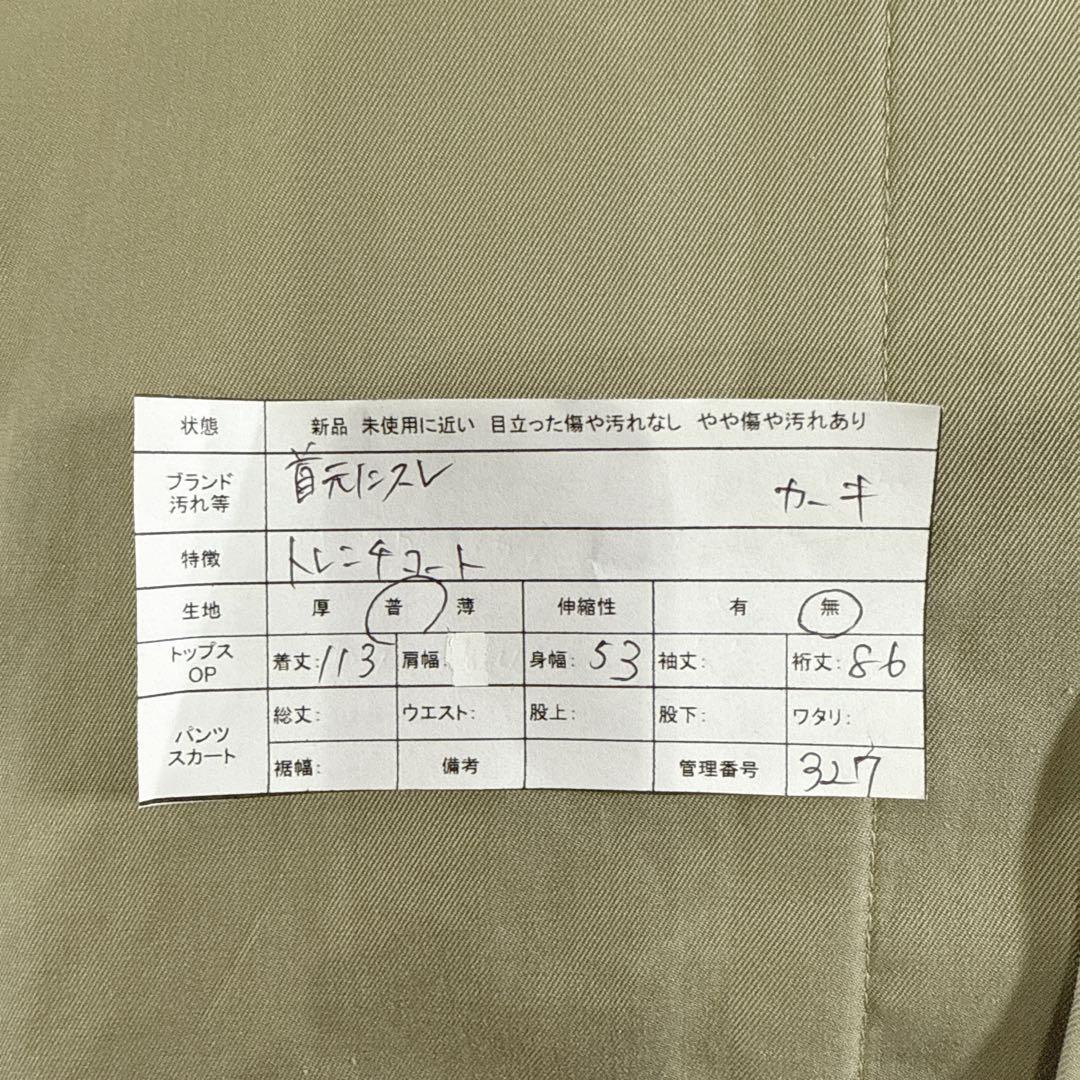 状態 新品 未使用に近い 目立った傷や汚れなし やや傷や汚れあり
ブランド 汚れ等 首元にスレ カーキ
特徴 トレンチコート
生地 厚 普 薄 伸縮性 有 無
トップス OP 着丈:113 肩幅: 身幅:53 袖丈: 裄丈:86
パンツ スカート 総丈: ウエスト: 股上: 股下: ワタリ:
裾幅: 備考 管理番号 327